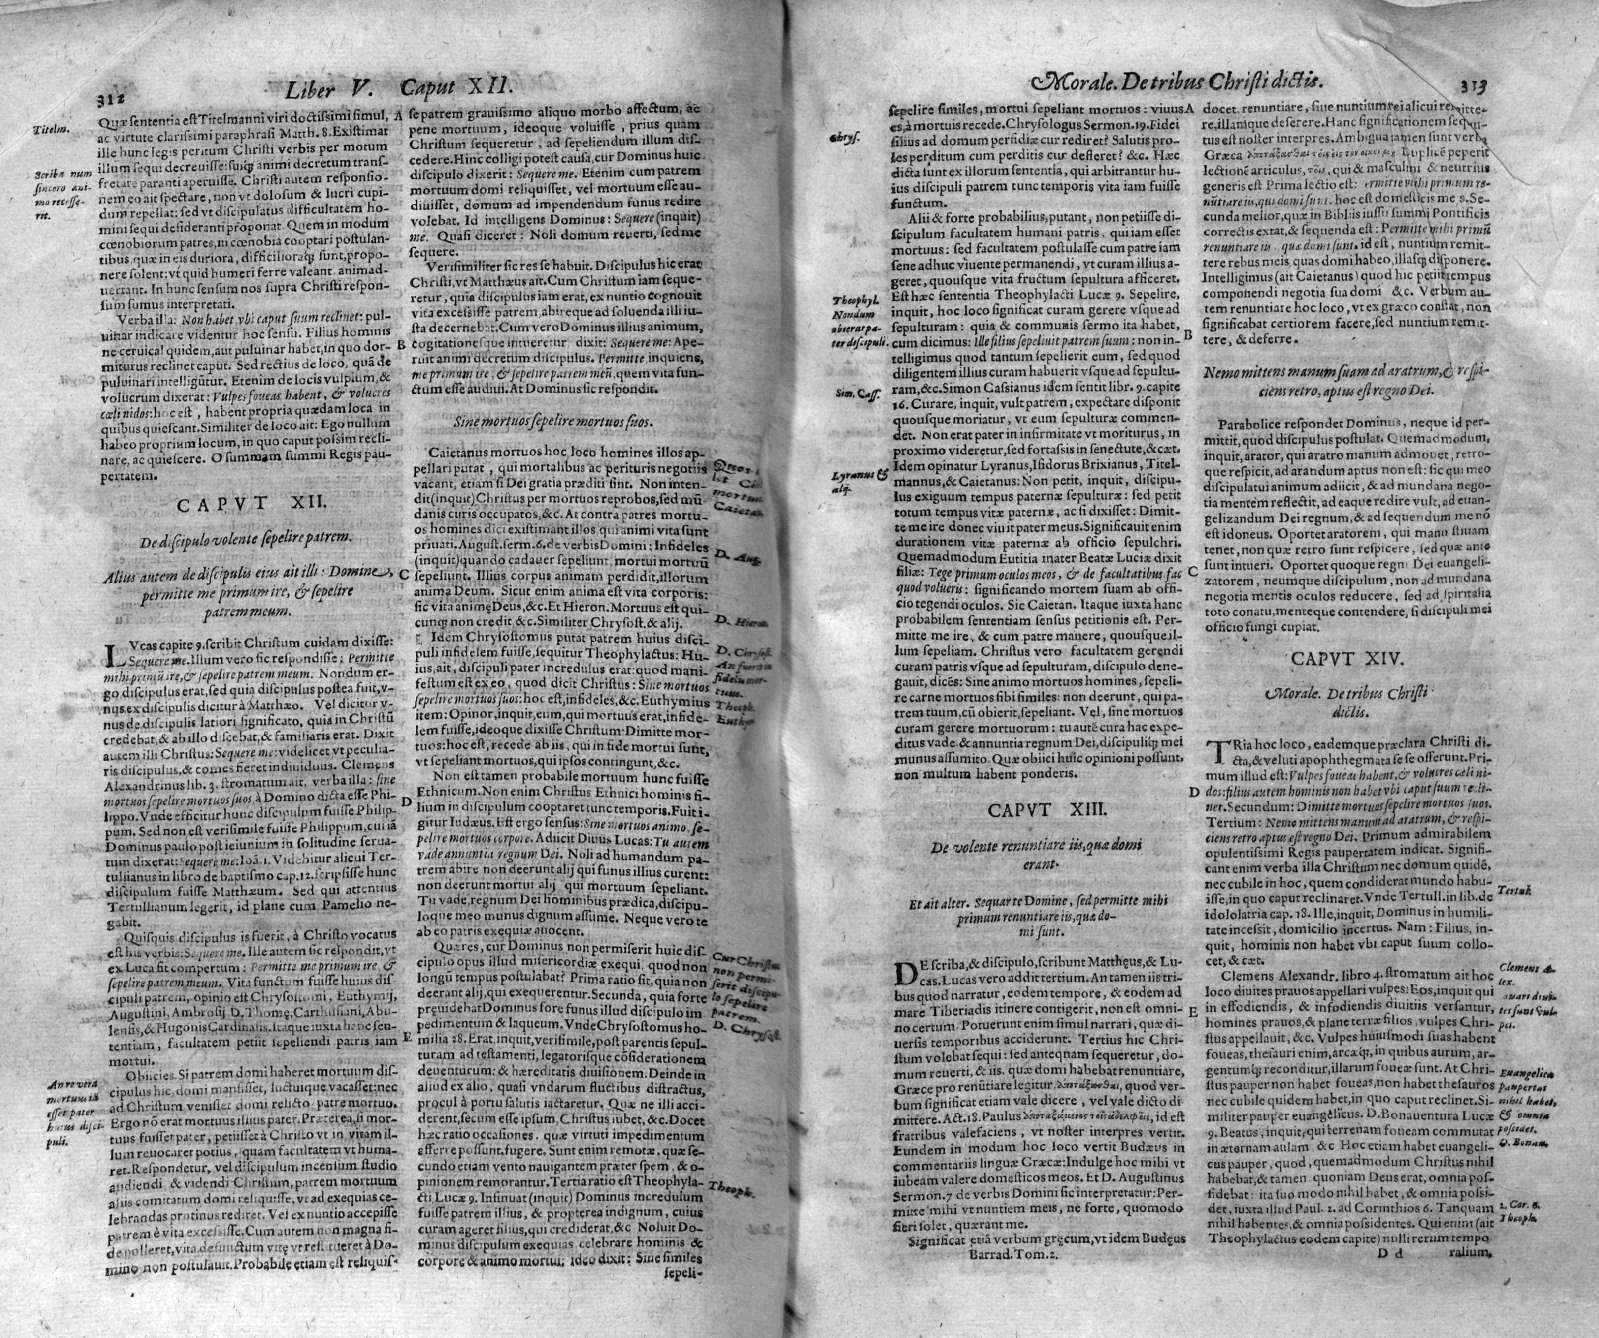 312
Liber V. Caput XII.
Titelm.
Scribæ num
sincero ani-
mo recesse-
rit.
Quæ sententia est Titelmanni viri doctissimi simul,
ac virtute clarissimi paraphrasi Matth. 8. Existimat
ille hunc legis peritum Christi verbis per motum
illum sequi decreuisse: suiq; animi decretum trans-
fretare paranti aperuisse. Christi autem responsio-
nem eo ait spectare, non vt dolosum & lucri cupi-
dum repellat: sed vt discipulatus difficultatem ho-
mini sequi desideranti proponat. Quem in modum
cœnobiorum patres, in cœnobia cooptari postulan-
tibus, quæ in eis duriora, difficilioraq; sunt, propo-
nere solent: vt quid humeri ferre valeant, animad-
uertant. In hunc sensum nos supra Christi respon-
sum sumus interpretati.
Verba illa: Non habet, vbi caput suum reclinet: pul-
uinar indicare videntur hoc sensu. Filius hominis
ne ceruical quidem, aut puluinar habet, in quo dor-
miturus reclinet caput. Sed rectius de loco, quā de
puluinari intelligūtur. Etenim de locis vulpium, &
volucrum dixerat: Vulpes foueas habent, & volucres
cæli nidos: hoc est, habent propria quædam loca in
quibus quiescant. Similiter de loco ait: Ego nullum
habeo proprium locum, in quo caput possim recli-
nare, ac quiescere. O summam summi Regis pau-
pertatem.
CAPVT XII.
De discipulo volente sepelire patrem.
Alius autem de discipulis eius ait illi: Domine,
permitte me primum ire, & sepelire
patrem meum.
LVcas capite 9. scribit Christum cuidam dixisse:
Sequere me. Illum vero sic respondisse; Permitte
mihi primū ire, & sepelire patrem meum. Nondum er-
go discipulus erat, sed quia discipulus postea fuit, v-
nus ex discipulis dicitur à Matthæo. Vel dicitur v-
nus de discipulis latiori significato, quia in Christū
credebat, & ab illo discebat, & familiaris erat. Dixit
autem illi Christus: Sequere me: videlicet vt peculia-
ris discipulus, & comes fieret indiuiduus. Clemens
Alexandrinus lib. 3. stromatum ait, verba illa: sine
mortuos sepelire mortuos suos, à Domino dicta esse Phi-
lippo. Vnde efficitur hunc discipulum fuisse Philip-
pum. Sed non est verisimile fuisse Philippum, cui iā
Dominus paulo post ieiunium in solitudine serua-
tum dixerat: Sequere me: Ioā. 1. Videbitur alicui Ter-
tullianus in libro de baptismo cap. 12. scripsisse hunc
discipulum fuisse Matthæum. Sed qui attentius
Tertullianum legerit, id plane cum Pamelio ne-
gabit.
Quisquis discipulus is fuerit, à Christo vocatus
est his verbis: Sequere me. Ille autem sic respondit, vt
ex Luca fit compertum: Permitte me primum ire, &
sepelire patrem meum. Vita functum fuisse huius dis-
cipuli patrem, opinio est Chrysostomi, Euthymij,
Augustini, Ambrosij D. Thomę, Carthusiani, Abu-
lensis, & Hugonis Cardinalis. Itaque iuxta hanc sen-
tentiam, facultatem petiit sepeliendi patris iam
mortui.
An re vera
mortuus iā
esset pater
huius disci-
puli.
Obiicies. Si patrem domi haberet mortuum dis-
cipulus hic, domi mansisset, luctuique vacasset: nec
ad Christum venisset domi relicto patre mortuo.
Ergo nō erat mortuus illius pater. Præterea, si mor-
tuus fuisset pater, petiisset à Christo vt in vitam il-
lum reuocaret potius, quam facultatem vt huma-
ret. Respondetur, vel discipulum incensum studio
audiendi & videndi Christum, patrem mortuum
aliis comitatum domi reliquisse, vt ad exequias ce-
lebrandas protinus rediret. Vel ex nuntio accepisse
patrem è vita excessisse. Cum autem non magna fi-
de polleret, vita defunctum vitę vt resti tueret à Do-
mino non postulauit. Probabile etiam est reliquis-
A
B
C
D
E
se patrem grauissimo aliquo morbo affectum, ac
pene mortuum, ideoque voluisse, prius quam
Christum sequeretur, ad sepeliendum illum dis-
cedere. Hinc colligi potest causa, cur Dominus huic
discipulo dixerit: Sequere me. Etenim cum patrem
mortuum domi reliquisset, vel mortuum esse au-
diuisset, domum ad impendendum funus redire
volebat. Id intelligens Dominus: Sequere (inquit)
me. Quasi diceret: Noli domum reuerti, sed me
sequere.
Verisimiliter sic res se habuit. Discipulus hic erat
Christi, vt Matthæus ait. Cum Christum iam seque-
retur, quia discipulus iam erat, ex nuntio cognouit
vita excessisse patrem, abireque ad soluenda illi iu-
sta decernebat. Cum vero Dominus illius animum,
cogitationesque intueretur dixit: Sequere me: Ape-
ruit animi decretum discipulus. Permitte, inquiens,
me primum ire, & sepelire patrem meū, quem vita fun-
ctum esse audiui. At Dominus sic respondit.
Sine mortuos sepelire mortuos suos.
Caietanus mortuos hoc loco homines illos ap-
pellari putat, qui mortalibus ac perituris negotiis
vacant, etiam si Dei gratia præditi sint. Non inten-
dit (inquit) Christus per mortuos reprobos, sed mū-
danis curis occupatos, &c. At contra patres mortu-
os homines dici existimant illos, qui animi vita sunt
priuati. August. serm. 6. de verbis Domini: Infideles
(inquit) quando cadauer sepeliunt, mortui mortuū
sepeliunt. Illius corpus animam perdidit, illorum
anima Deum. Sicut enim anima est vita corporis:
sic vita animę Deus, &c. Et Hieron. Mortuus est qui-
cunq; non credit &c. Similiter Chrysost. & alij.
Idem Chrysostomus putat patrem huius disci-
puli infidelem fuisse, sequitur Theophylactus: Hu-
ius, ait, discipuli pater incredulus erat: quod mani-
festum est ex eo, quod dicit Christus: Sine mortuos
sepelire mortuos suos: hoc est, infideles, &c. Euthymius
item: Opinor, inquit, eum, qui mortuus erat, infide-
lem fuisse, ideoque dixisse Christum: Dimitte mor-
tuos: hoc est, recede ab iis, qui in fide mortui sunt,
vt sepeliant mortuos, qui ipsos contingunt, &c.
Non est tamen probabile mortuum hunc fuisse
Ethnicum. Non enim Christus Ethnici hominis fi-
lium in discipulum cooptaret tunc temporis. Fuit i-
gitur Iudæus. Est ergo sensus: Sine mortuos animo, se-
pelire mortuos corpore. Adiicit Diuus Lucas: Tu autem
vade annuntia regnum Dei. Noli ad humandum pa-
trem abire non deerunt alij qui funus illius curent:
non deerunt mortui alij qui mortuum sepeliant.
Tu vade, regnum Dei hominibus prædica, discipu-
loque meo munus dignum assume. Neque vero te
ab eo patris exequiæ auocent.
Quæres, cur Dominus non permiserit huic dis-
cipulo opus illud misericordiæ exequi, quod non
longū tempus postulabat? Prima ratio fit, quia non
deerant alij, qui exequerentur. Secunda, quia forte
preuidebat Dominus fore funus illud discipulo im
pedimentum & laqueum. Vnde Chrysostomus ho-
milia 28. Erat, inquit, verisimile, post parentis sepul-
turam ad testamenti, legatorisque cōsiderationem
deuenturum: & hæreditatis diuisionem. Deinde in
aliud ex alio, quasi vndarum fluctibus distractus,
procul à portu salutis iactaretur. Quæ ne illi acci-
derent, secum esse ipsum, Christus iubet, &c. Docet
hæc ratio occasiones, quæ virtuti impedimentum
afferre possunt, fugere. Sunt enim remotæ, quæ se-
cundo etiam vento nauigantem præter spem, & o-
pinionem remorantur. Tertia ratio est Theophyla-
cti Lucæ 9. Insinuat (inquit) Dominus incredulum
fuisse patrem illius, & propterea indignum, cuius
curam ageret filius, qui crediderat, &c Noluit Do-
minus discipulum exequias celebrare hominis &
corpore & animo mortui; ideo dixit: Sine similes
sepeli-
D. Aug.
D. Hieron.
D. Chrysost.
An fuerit in
fidelis mor-
tuus.
Theoph.
Euthy.
Cur Christus
non permi-
serit discipu
lo sepelire
patrem.
D. Chrysost.
Theoph.
Morale. De tribus Christi dictis.
313
Chrys.
Theophyl.
Nondum
obierat pa-
ter discipuli.
Sim. Cass.
Lyranus &
alij.
sepelire similes, mortui sepeliant mortuos: viuus
es, à mortuis recede. Chrysologus Sermon. 19. Fidei
filius ad domum perfidiæ cur rediret? Salutis pro-
les perditum cum perditis cur defleret? &c. Hæc
dicta sunt ex illorum sententia, qui arbitrantur hu-
ius discipuli patrem tunc temporis vita iam fuisse
functum.
Alii & forte probabilius, putant, non petiisse di-
scipulum facultatem humani patris, qui iam esset
mortuus: sed facultatem postulasse cum patre iam
sene adhuc viuente permanendi, vt curam illius a-
geret, quousque vita fructum sepultura afficeret.
Est hæc sententia Theophylacti Lucæ 9. Sepelire,
inquit, hoc loco significat curam gerere vsque ad
sepulturam: quia & communis sermo ita habet,
cum dicimus: Ille filius sepeliuit patrem suum: non in-
telligimus quod tantum sepelierit eum, sed quod
diligentem illius curam habuerit vsque ad sepultu-
ram, &c. Simon Cassianus idem sentit lib. 9. capite
16. Curare, inquit, vult patrem, expectare disponit
quousque moriatur, vt eum sepulturæ commen-
det. Non erat pater in infirmitate vt moriturus, in
proximo videretur, sed fortassis in senectute, & cæt.
Idem opinatur Lyranus, Isidorus Brixianus, Titel-
mannus, & Caietanus: Non petit, inquit, discipu-
lus exiguum tempus paternæ sepulturæ: sed petit
totum tempus vitæ paternæ, ac si dixisset: Dimit-
te me ire donec viuit pater meus. Significauit enim
durationem vitæ paternæ ab officio sepulchri.
Quemadmodum Eutitia mater Beatæ Luciæ dixit
filiæ: Tege primum oculos meos, & de facultatibus fac
quod volueris: significando mortem suam ab offi-
cio tegendi oculos. Sic Caietan. Itaque iuxta hanc
probabilem sententiam sensus petitionis est. Per-
mitte me ire, & cum patre manere, quousque il-
lum sepeliam. Christus vero facultatem gerendi
curam patris vsque ad sepulturam, discipulo dene-
gauit, dicēs: Sine animo mortuos homines, sepeli-
re carne mortuos sibi similes: non deerunt, qui pa-
trem tuum, cū obierit, sepeliant. Vel, sine mortuos
curam gerere mortuorum: tu autē cura hac expe-
ditus vade, & annuntia regnum Dei, discipuliq; mei
munus assumito. Quæ obiici huic opinioni possunt,
non multum habent ponderis.
CAPVT XIII.
De volente renuntiare iis, quæ domi
erant.
Et ait alter. Sequar te Domine, sed permitte mihi
primum renuntiare iis, quæ do-
mi sunt.
DE scriba, & discipulo, scribunt Matthęus, & Lu-
cas. Lucas vero addit tertium. An tamen iis tri-
bus quod narratur, eodem tempore, & eodem ad
mare Tiberiadis itinere contigerit, non est omni-
no certum. Potuerunt enim simul narrari, quæ di-
uersis temporibus acciderunt. Tertius hic Chri-
stum volebat sequi: sed anteqnam sequeretur, do-
mum reuerti, & iis, quæ domi habebat renuntiare,
Græce pro renūtiare legitur, ἀποτάξασθαι, quod ver-
bum significat etiam vale dicere, vel vale dicto di
mittere. Act. 18. Paulus ἀποταξάμενος τοῖς ἀδελφοῖς, id est
fratribus valefaciens, vt noster interpres vertit.
Eundem in modum hoc loco vertit Budæus in
commentariis linguæ Græcæ: Indulge hoc mihi vt
iubeam valere domesticos meos. Et D. Augustinus
Sermon. 7 de verbis Domini sic interpretatur: Per-
mitte mihi vt nuntiem meis, ne forte, quomodo
fieri solet, quærant me.
Significat etiā verbum gręcum, vt idem Budęus
Barrad. Tom. 2.
A
B
C
D
E
docet, renuntiare, siue nuntium rei alicui remitte-
re, illamque deserere. Hanc significationem sequu-
tus est noster interpres. Ambigua tamen sunt verba
Græca Duplicē peperit
lectionē articulus, τοῖς, qui & masculini & neutrius
generis est Prima lectio est: Permitte mihi primum re-
nūtiare iis, qui domi sunt, hoc est domesticis meis. Se-
cunda melior, quæ in Bibliis iussu summi Pontificis
correctis extat, & sequenda est: Permitte mihi primū
renuntiare iis quæ domi sunt. id est, nuntium remit-
tere rebus meis, quas domi habeo, illasq; disponere.
Intelligimus (ait Caietanus) quod hic petit tempus
componendi negotia sua domi &c. Verbum au-
tem renuntiare hoc loco, vt ex græco constat, non
significabat certiorem facere, sed nuntium remit-
tere, & deferre.
Nemo mittens manum suam ad aratrum, & respi-
ciens retro, aptus est regno Dei.
Parabolice respondet Dominus, neque id per-
mittit, quod discipulus postulat. Quemadmodum,
inquit, arator, qui aratro manum admouet, retro-
que respicit, ad arandum aptus non est: sic qui meo
discipulatui animum adiicit, & ad mundana nego-
tia mentem reflectit, ad eaque redire vult, ad euan-
gelizandum Dei regnum, & ad sequendum me nō
est idoneus. Oportet aratorem, qui manu stiuam
tenet, non quæ retro sunt respicere, sed quæ ante
sunt intueri. Oportet quoque regni Dei euangeli-
zatorem, neumque discipulum, non ad mundana
negotia mentis oculos reducere, sed ad spiritalia
toto conatu, menteque contendere, si discipuli mei
officio fungi cupiat.
CAPVT XIV.
Morale. De tribus Christi
dictis.
TRia hoc loco, eademque præclara Christi di-
cta, & veluti apophthegmata se se offerunt. Pri-
mum illud est: Vulpes foueas habent, & volucres cæli ni-
dos: filius autem hominis non habet vbi caput suum recli-
net. Secundum: Dimitte mortuos sepelire mortuos suos.
Tertium: Nemo mittens manum ad aratrum, & respi-
ciens retro aptus est regno Dei. Primum admirabilem
opulentissimi Regis paupertatem indicat. Signifi-
cant enim verba illa Christum nec domum quidē,
nec cubile in hoc, quem condiderat mundo habu-
isse, in quo caput reclinaret. Vnde Tertull. in lib. de
idololatria cap. 18. Ille, inquit, Dominus in humili-
tate incessit, domicilio incertus. Nam: Filius, in-
quit, hominis non habet vbi caput suum collo-
cet, & cæt.
Clemens Alexandr. libro 4. stromatum ait hoc
loco diuites prauos appellari vulpes: Eos, inquit qui
in effodiendis, & infodiendis diuitiis versantur,
homines prauos, & plane terræ filios, vulpes Chri-
stus appellauit, &c. Vulpes huiusmodi suas habent
foueas, thesauri enim, arcæq;, in quibus aurum, ar-
gentumq; reconditur, illarum foueæ sunt. At Chri-
stus pauper non habet foueas, non habet thesauros
nec cubile quidem habet, in quo caput reclinet. Si-
militer pauper euangelicus. D. Bonauentura Lucæ
9. Beatus, inquit, qui terrenam foueam commutat
in æternam aulam & Hoc etiam habet euangeli-
cus pauper, quod, quemadmodum Christus nihil
habebat, & tamen quoniam Deus erat, omnia pos-
sidebat: ita suo modo nihil habet, & omnia possi-
det, iuxta illud Paul. 2. ad Corinthios 6. Tanquam
nihil habentes, & omnia possidentes. Qui enim (ait
Theophylactus eodem capite) nulli rerum tempo
D d
ralium,
Tertull.
Clemens A-
lex.
Auari diui-
tes sunt vul-
pes.
Euangelica
paupertas
nihil habet,
& omnia
possidet.
D. Bonau.
2. Cor. 6.
Theoph.